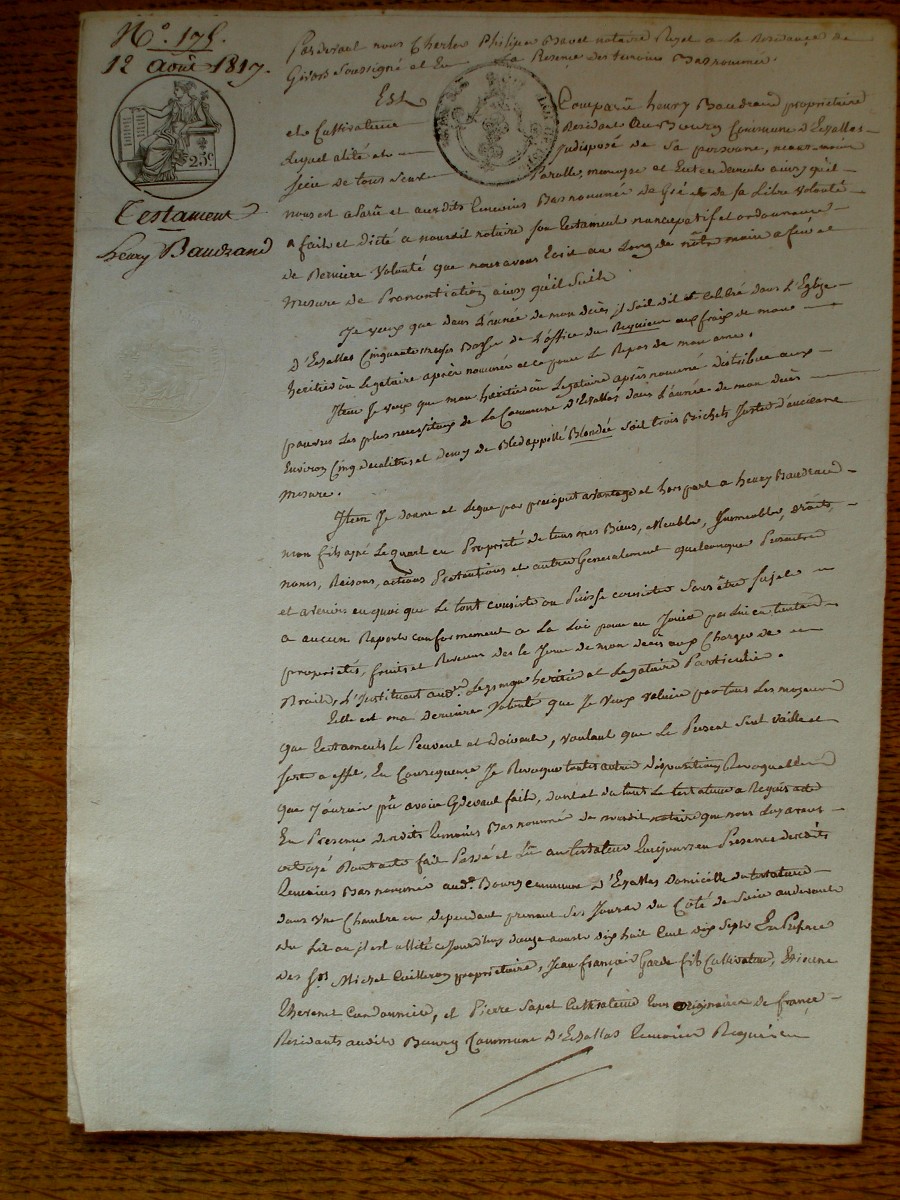 No. 175.
12 août 1817.
25c
Testament
henry Baudrand
Pardevant nous Charles Philippe notaire Royal a la Residence de
Givors Soussigné et En la Presence des temoins Bas nommés.
Est Comparu henry Baudrand propriétaire
et Cultivateur Résidant Au Bourg Commune d'Echallas
lequel alité et indisposé de sa personne, neanmoins
sain de tous sens Parolle, memoire et Entendement ainsy qu'il
nous est aparu et auxdits temoins Bas nommés De Gré et de sa libre volonté
a fait et dicté a nousdit notaire son testament nuncupatif et ordonnance
de Derniere volonté que nous avons Ecrit au Long de nôtre main a feur et
mesure de Prononciation ainsy qu'il suit
Je veux que dans L'année de mon decès il soit dit et célébré dans L'Eglise
d'Echallas Cinquante messes Basse de L'office du Requiem aux frais de mon
heritier ou Legataire après nommé et ce pour Le Repos de mon ame.
Item Je veux que mon heritier ou Legataire après nommé distribue aux
pauvres Les plus necessiteux de La Commune d'Echallas dans L'année de mon decès
Environ Cinq decalitres et demy de Bled appellé Blondée soit trois Bichets Juste d'ancienne
mesure.
Item Je donne et Legue par préciput avantage et hors part a henry Baudrand
mon fils ainé Le quart en Propriété de tous mes Biens, Meubles, Immeubles, droits,
noms, Raisons, actions Pretentions et autres Generalement quelconque Presents
et avenirs en quoi que Le tout consiste ou Puisse consister Sans être sujet
a aucun Raport conformement a La Loi pour en Jouir par lui en toute
propriétés, fruits et Revenus des le Jour de mon decès aux Charges de
Droits, L'Instituant audt. Legs mon heritier et Legataire Particulier.
Telle est ma derniere volonté que Je veux valoir par tous Les moyens
que testaments le Peuvent et doivent, voulant que Le Present Seul vaille et
sorte a effet, En Consequence Je Revoque toutes autres dispositions Revoquables
que J'aurais pû avoir Cydevant fait, dont et du tout Le testateur a Requis acte
En Presence desdits temoins Bas nommés De nousdit notaire que nous Luy avons
octroyé Dont acte fait Passé et Lû au testateur toujours en Presence desdits
temoins Bas nommés audt. Bourg commune d'Echallas Domicille du testateur
dans une Chambre en dependant prenant ses Jours du Côté de au devant
du Lit ou il est allité cejourd'huy douze aoust dix huit Cent dix sept En Présence
des Srs. Michel Cuilleron propriétaire, Jean françois Garde fils Cultivateur, Etienne
thevenet Cordonnier, et Pierre Cultivateur tous originaires de france
Résidants audit Bourg Commune d'Echallas temoins Requis